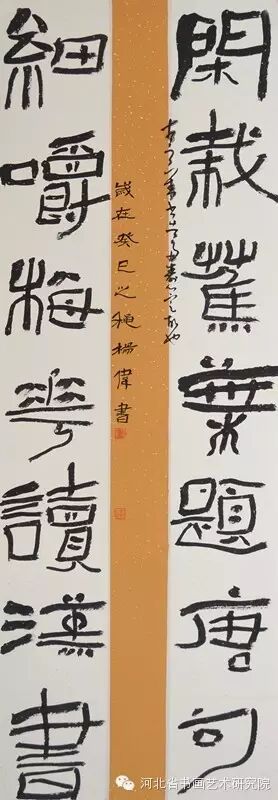 閑栽蕉葉題唐句
歲在癸巳之穐楊偉書
細嚼梅華讀漢書
河北省书画艺术研究院